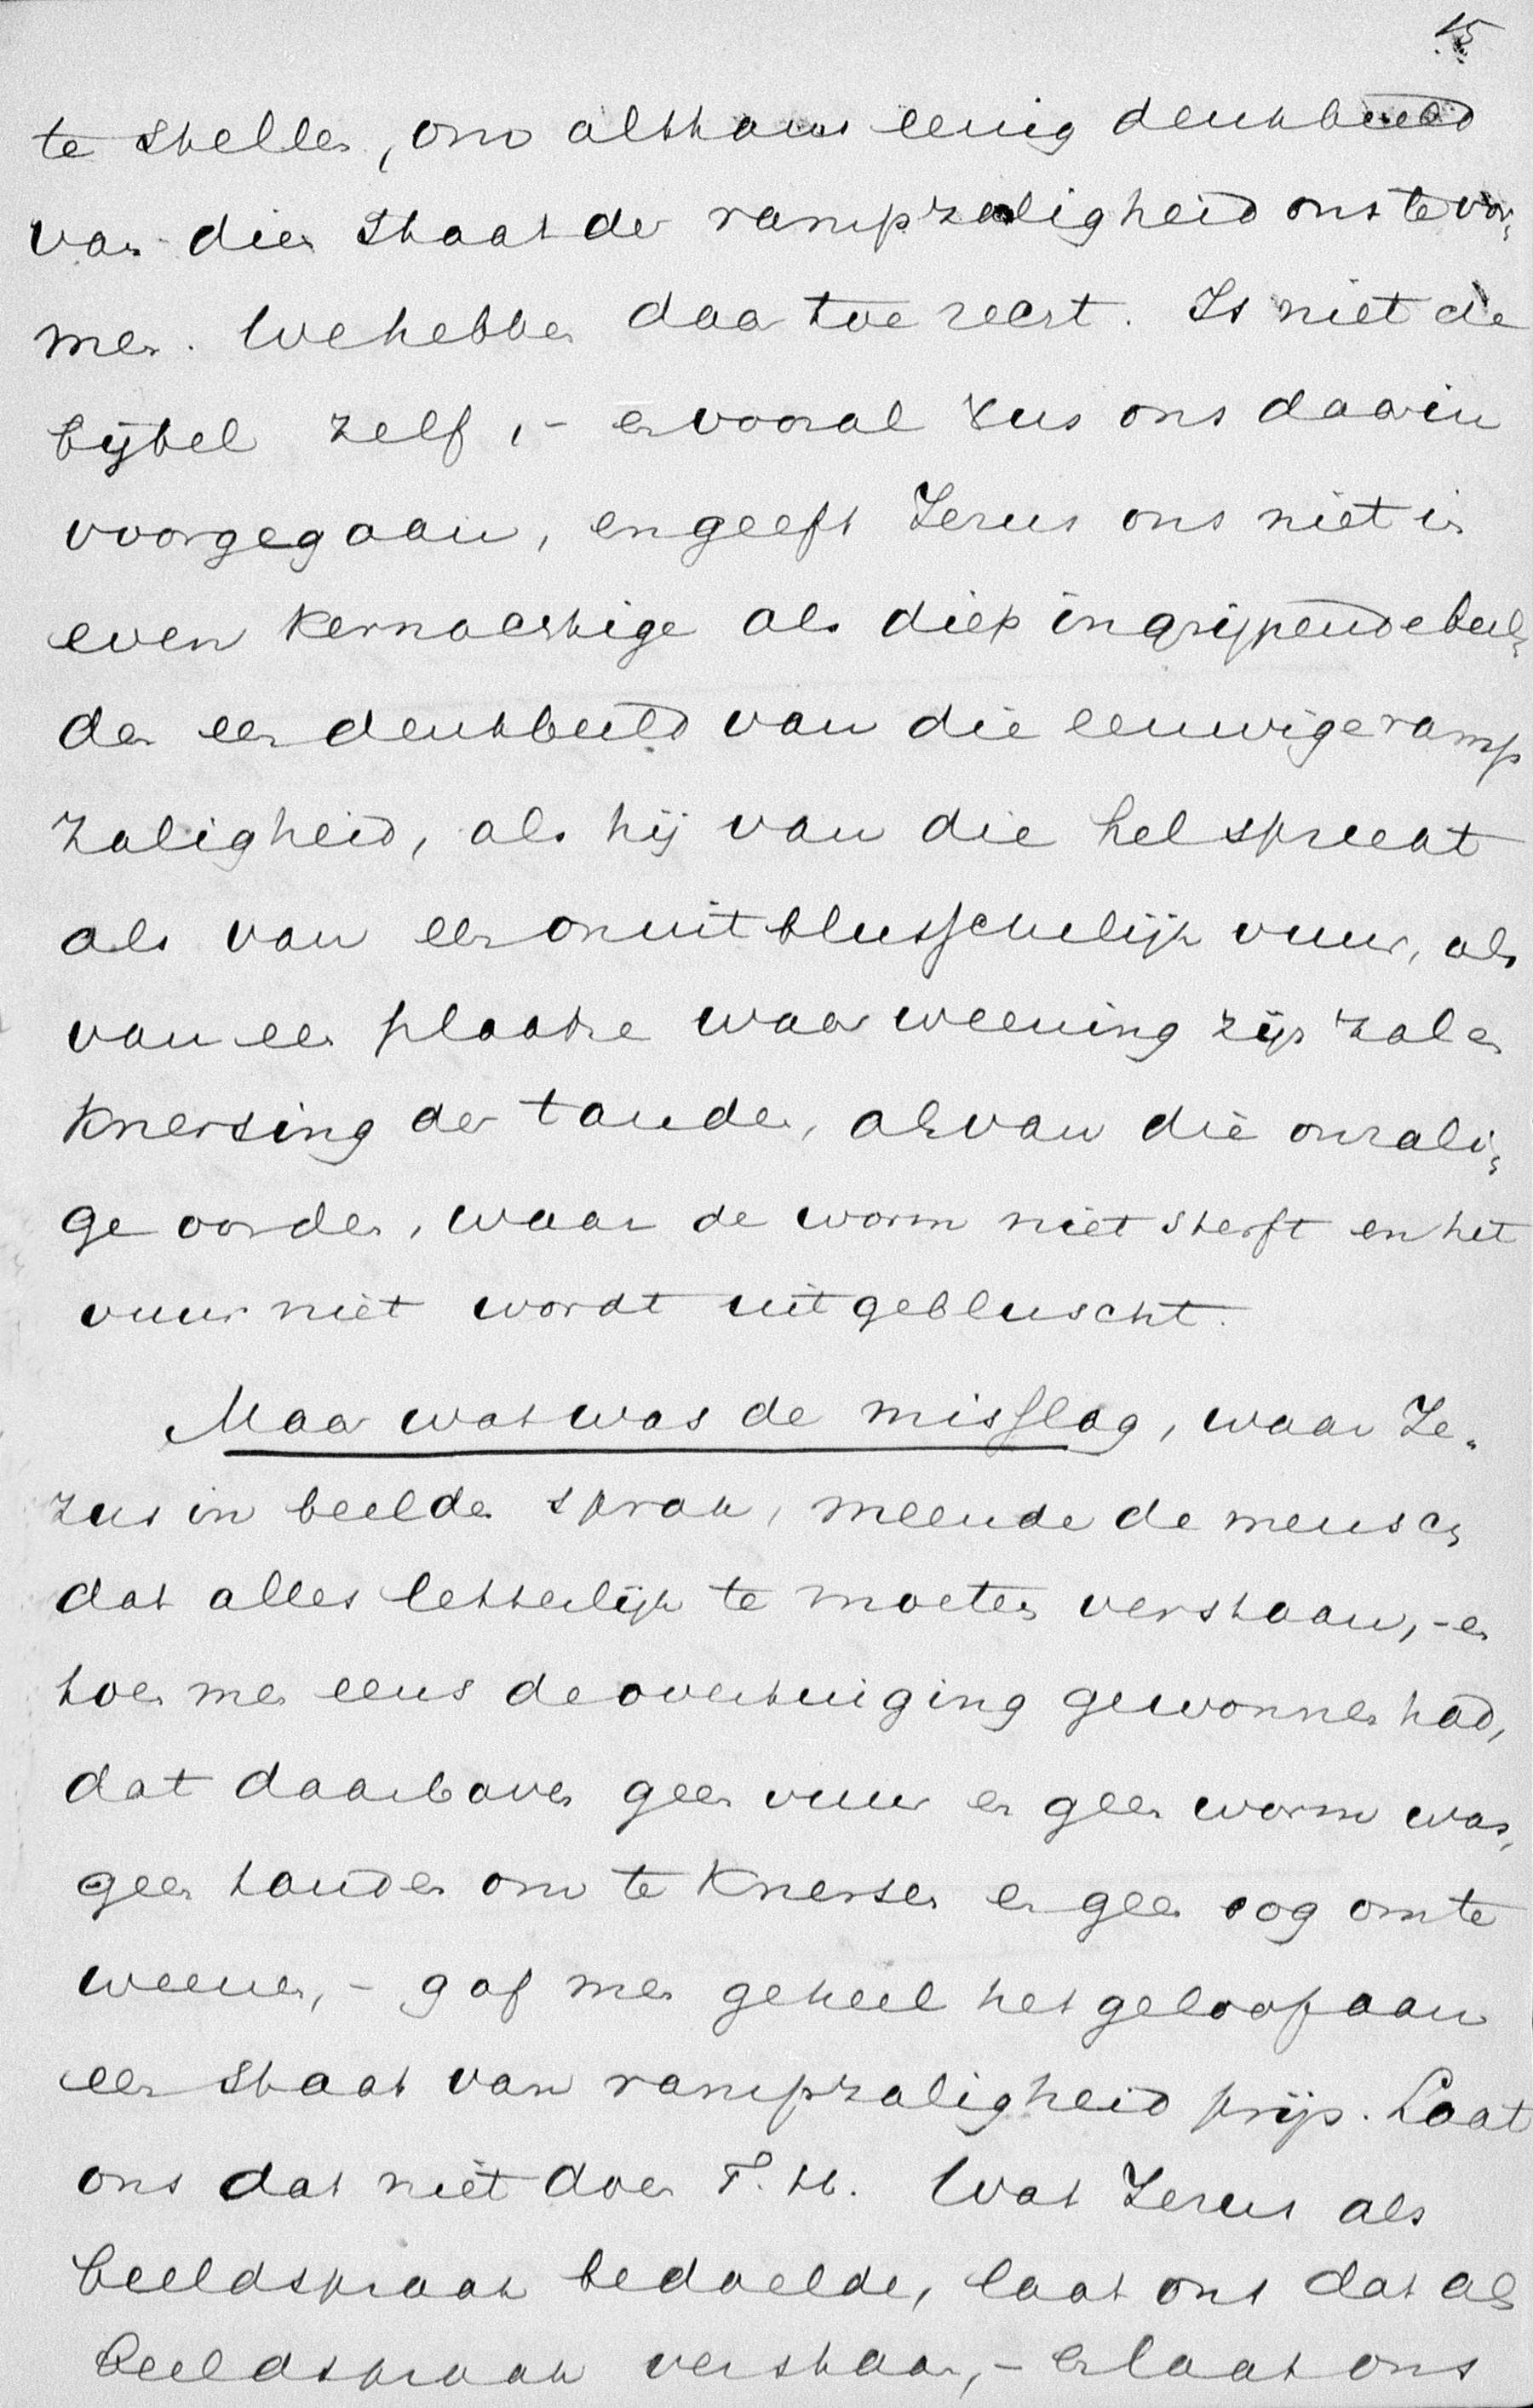 15
te stellen, om althans eenig denkbeeld
van dien staat der rampzaligheid ons te vor„
men. We hebben daartoe recht. Is niet de
bijbel zelf, – en vooral Jezus ons daarin
voorgegaan, en geeft Jezus ons niet in
even kernachtige als diep ingrijpende beel„
den een denkbeeld van die eeuwige ramp
zaligheid, als hij van die hel spreekt
als van een onuitblusschelijk vuur, als
van een plaatse waar weening zijn zal en
knersing der tanden, als van die onzali„
ge oorden, waar de worm niet sterft en het
vuur niet wordt uitgebluscht.
Maar wat was de misslag, waar Je„
zus in beelden sprak, meende de mensch
dat alles letterlijk te moeten verstaan, – en
toen men eens de overtuiging gewonnen had,
dat daarboven geen vuur en geen worm was,
geen tanden om te knersen en geen oog om te
weenen, – gaf men geheel het geloof aan
een staat van rampzaligheid prijs. Laat
ons dat niet doen T. H. Wat Jezus als
beeldspraak bedoelde, laat ons dat als
beeldspraak verstaan, – en laat ons